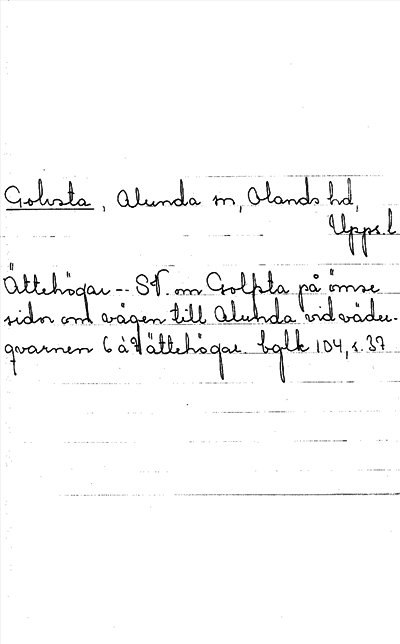 Golvsta, Alunda sn, Olands hd,
Upps.l
Ättehögar -- SV. om Golfsta på ömse
sidor om vägen till Alunda vid väder-
qvarnen 6 à 7 ättehögar. bglk 104, s. 37